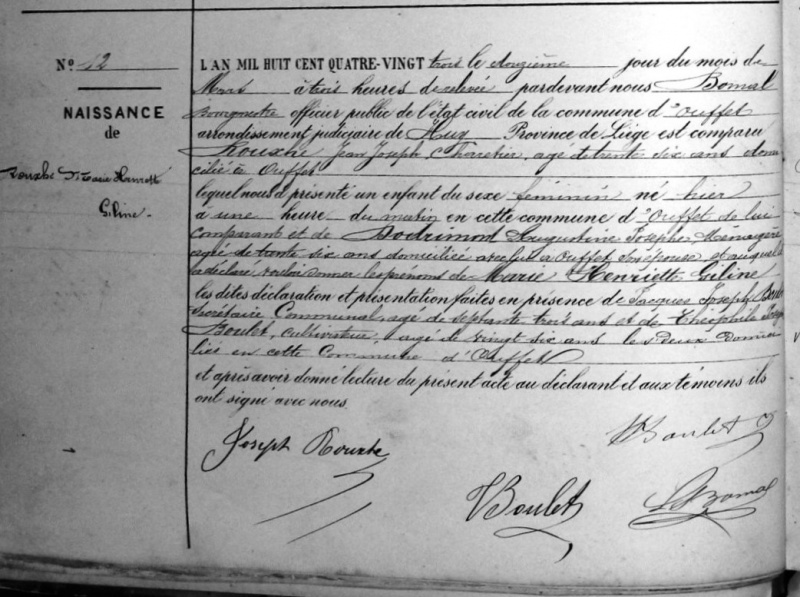 N° 12
NAISSANCE
de
Rouxhe Marie Henriette
Giline
L'AN MIL HUIT CENT QUATRE-VINGT trois le douzième jour du mois de
Mars à trois heures de relevée pardevant nous Bomal
Bourgmestre officier public de l'état civil de la commune d'Ouffet
arrondissement judiciaire de Huy Province de Liège est comparu
Rouxhe Jean Joseph, Charetier, agé de trente six ans domi
cilié à Ouffet
lequel nous a présenté un enfant du sexe féminin né hier
à une heure du matin en cette commune d'Ouffet de lui
comparant et de Dodrimont Augustine Josephe, Ménagère
agée de trente six ans domiciliée avec lui à Ouffet son épouse, et auquel il
a déclaré vouloir donner les prénoms de Marie Henriette Giline
les dites déclaration et présentation faites en présence de Jacques Joseph Boulet
Secrétaire Communal, agé de septante trois ans et de Théophile
Boulet, cultivateur, agé de vingt six ans les deux domici
liés en cette Commune d'Ouffet
et après avoir donné lecture du présent acte au déclarant et aux témoins ils
ont signé avec nous.
Joseph Rouxhe
Boulet
Boulet
Bomal